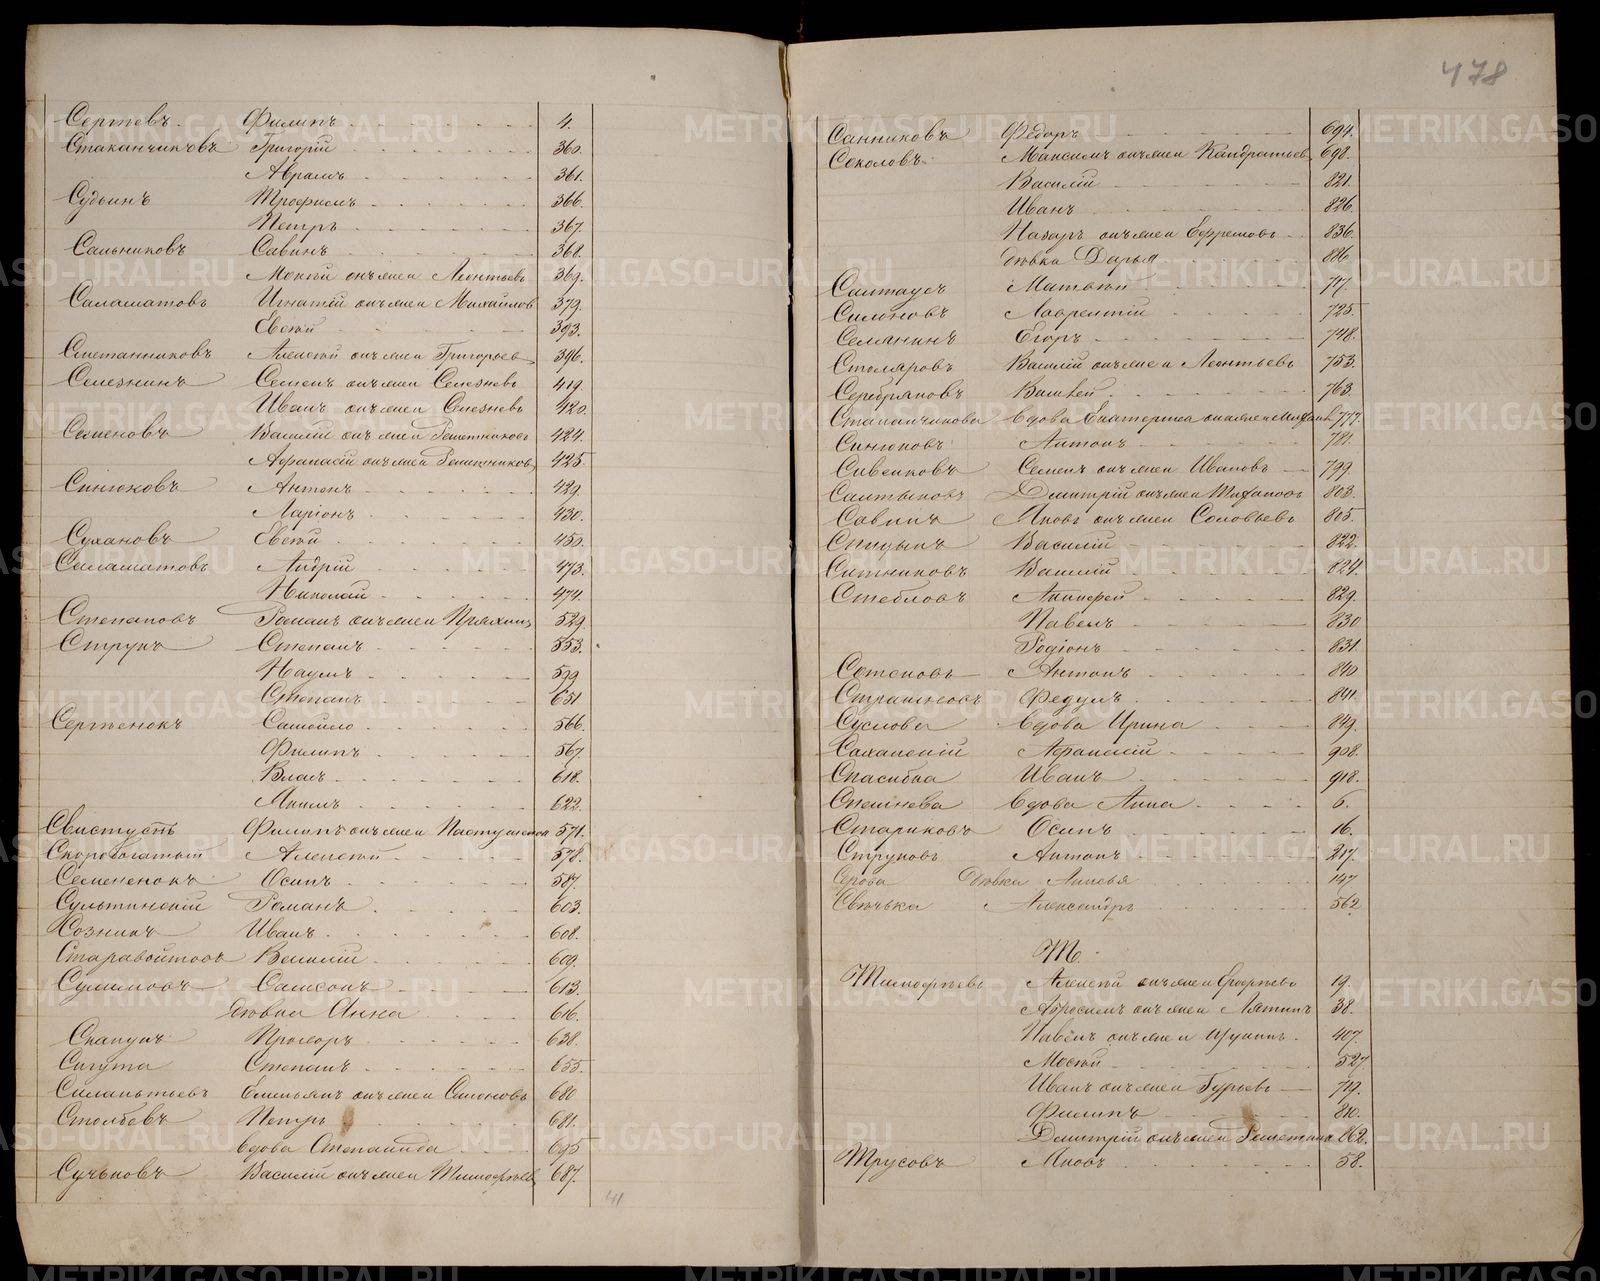 478
Сергѣевъ Филипъ 4.
Стаканчиковъ Григорій 360.
Аврамъ 361.
Судьинъ Трофимъ 366.
Петръ 367.
Сальниковъ Савинъ 368.
Мокѣй онъ же и Леонтьевъ 369.
Саламатовъ Игнатій онъ же и Михайлов 379.
Евсѣй 393.
Сметанниковъ Алексѣй онъ же и Григорьев 396.
Селезнинъ Семенъ онъ же и Селезневъ 419.
Иванъ онъ же и Селезневъ 420.
Семеновъ Василій онъ же и Решетниковъ 424.
Афанасій онъ же и Решетников 425
Синюковъ Антонъ 429.
Ларіонъ 430.
Сухановъ Евсѣй 450.
Саламатовъ Андрій 473.
Николай 474.
Степановъ Романъ онъ же и Пряхинъ 529.
Струкъ Степанъ 553.
Наумъ 599
Степанъ 651
Сергѣенокъ Самойло 566.
Филипъ 567.
Власъ 618.
Акимъ 622.
Свистунъ Филипъ онъ же и 571.
Скоробогатый Алексѣй 578.
Семененокъ Осипъ 587.
Сультинскій Романъ 603.
Созникъ Иванъ 608.
Старавойтовъ Василій 609.
Сулимовъ Самсонъ 613.
дѣвка Анна 616.
Скапунъ Прохоръ 638.
Сигута Степанъ 655.
Силантьевъ Емельянъ онъ же и Симоновъ 680
Столбовъ Петръ 681.
вдова Степанида 695
Сучковъ Василій онъ же и Тимофѣев 687.
41
Санниковъ Федоръ 694.
Соколовъ Максимъ онъ же и Кандратьев 698.
Василій 821.
Иванъ 826.
Назаръ онъ же и Ефремовъ 836.
дѣвка Дарья 886
Салтаусъ Матвѣй 717.
Силоновъ Лаврентій 725.
Селянинъ Егоръ 748.
Столяровъ Василій онъ же и Леонтьевъ 753.
Серебряковъ 763.
Стаканчикова вдова Екатерина она же и 777.
Синюковъ Антонъ 781.
Сивенковъ Семенъ онъ же и Ивановъ 799.
Салтыковъ Дмитрій онъ же и 803.
Савинъ Яковъ онъ же и Соловьевъ 805.
Василій 822.
Ситниковъ Василій 824.
Стебловъ 829.
Павелъ 830
Родіонъ 831
Антонъ 840
Федулъ 841.
Суслова вдова Ирина 849.
Саханскій Афанасій 908.
Спасибка Иванъ 918.
Спешнева вдова Анна 6.
Стариковъ Осипъ 16.
Струковъ Антонъ 217.
Серова Дѣвка Анисья 147
Свѣчька Александръ 562
Т.
Тимофѣевъ Алексѣй онъ же и Ерофѣевъ 19.
Абросимъ онъ же и Ляпинъ 38.
Павелъ онъ же и Щукинъ. 407.
Мосѣй 527
Иванъ онъ же и Гурьевъ 719.
Филипъ 810.
Дмитрій онъ же и 862.
Трусовъ Яковъ 58.